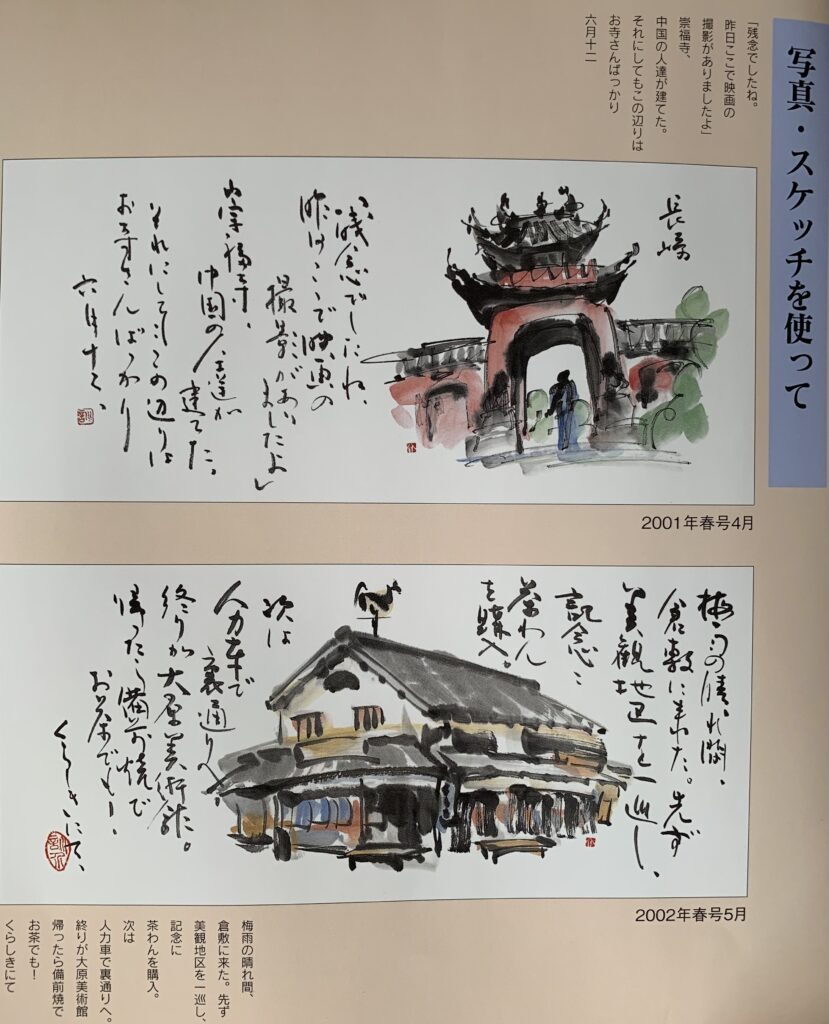 写真・スケッチを使って
「残念でしたね。
昨日ここで映画の
撮影がありましたよ」
崇福寺、
中国の人達が建てた。
それにしてもこの辺りは
お寺さんばっかり
六月十二
長崎
「残念でしたね、
昨日ここで映画の
撮影があり
ましたよ」
崇福寺、
中国の人達が
建てた。
それにしてもこの辺りは
お寺さんばっかり
六月十二、
2001年春号4月
梅雨の晴れ間、
倉敷に来た。先ず
美観地区を一巡し、
記念に
茶わん
を購入。
次は
人力車で
裏通りへ。
終りが大原美術館。
帰ったら備前焼で
お茶でも!
くらしきにて、
2002年春号5月
梅雨の晴れ間、
倉敷に来た。先ず
美観地区を一巡し、
記念に
茶わんを購入。
次は
人力車で裏通りへ。
終りが大原美術館
帰ったら備前焼で
お茶でも!
くらしきにて